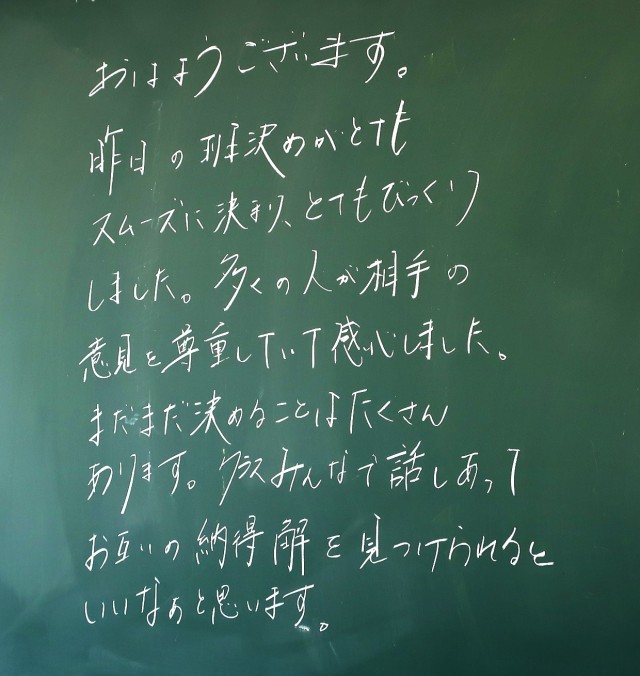 おはようございます。
昨日の班決めがとても
スムーズに決まり、とてもびっくり
しました。多くの人が相手の
意見を尊重していて感心しました。
まだまだ決めることはたくさん
あります。クラスみんなで話しあって
お互いの納得解を見つけられると
いいなぁと思います。